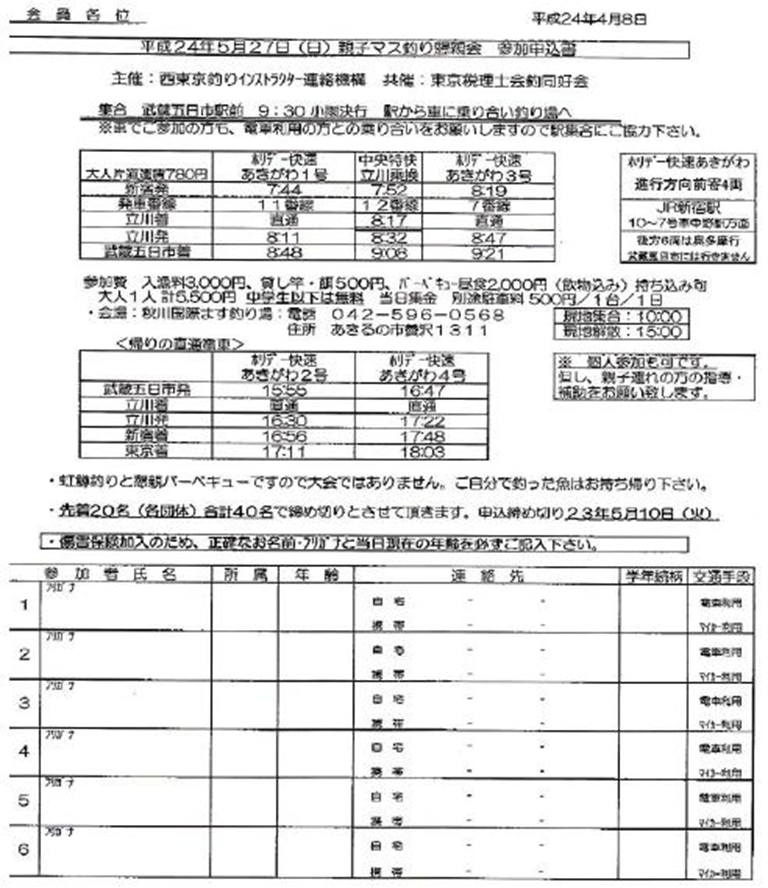 会員各位
平成24年4月8日
平成24年5月27日(日)親子マス釣り懇親会 参加申込書
主催:西東京釣りインストラクター連絡機構 共催:東京税理士会釣同好会
集合 武蔵五日市駅前 9:30小雨決行 駅から車に乗り合い釣り場へ
※車でご参加の方も、電車利用の方との乗り合いをお願いしますので駅集合にご協力下さい。
大人片道運賃780円 ホリデー快速あきがわ1号 中央特快立川乗換 ホリデー快速あきがわ3号
新宿発 7:44 7:52 8:19
発車番線 11番線 12番線 7番線
立川着 直通 8:17 直通
立川発 8:11 8:32 8:47
武蔵五日市着 8:48 9:08 9:21
ホリデー快速あきがわ
進行方向前寄4両
JR新宿駅
10~7号車中野駅方面
後方6両は奥多摩行
武蔵五日市には行きません
参加費 入漁料3,000円、貸し竿・餌500円、バーベキュー昼食2,000円(飲物込み)持ち込み可
大人1人計5,500円 中学生以下は無料 当日集金 別途駐車料500円/1台/1日
・会場:秋川国際ます釣り場:電話 042-596-0568
住所 あきるの市養沢1311
現地集合:10:00
現地解散:15:00
<帰りの直通電車>
ホリデー快速あきがわ2号 ホリデー快速あきがわ4号
武蔵五日市発 15:55 16:47
立川着 直通 直通
立川発 16:30 17:22
新宿着 16:56 17:48
東京着 17:11 18:03
※ 個人参加も可です。
但し、親子連れの方の指導・
補助をお願い致します。
・虹鱒釣りと懇親バーベキューですので大会ではありません。ご自分で釣った魚はお持ち帰り下さい。
・先着20名(各団体)合計40名で締め切りとさせて頂きます。申込締め切り23年5月10日(火)
・傷害保険加入のため、正確なお名前・フリガナと当日現在の年齢を必ずご記入下さい。
参加者氏名 所属 年齢 連絡先 学年続柄 交通手段
1 フリガナ 自宅 - - 電車利用
携帯 マイカー利用
2 フリガナ 自宅 - - 電車利用
携帯 マイカー利用
3 フリガナ 自宅 - - 電車利用
携帯 マイカー利用
4 フリガナ 自宅 - - 電車利用
携帯 マイカー利用
5 フリガナ 自宅 - - 電車利用
携帯 マイカー利用
6 フリガナ 自宅 - - 電車利用
携帯 マイカー利用